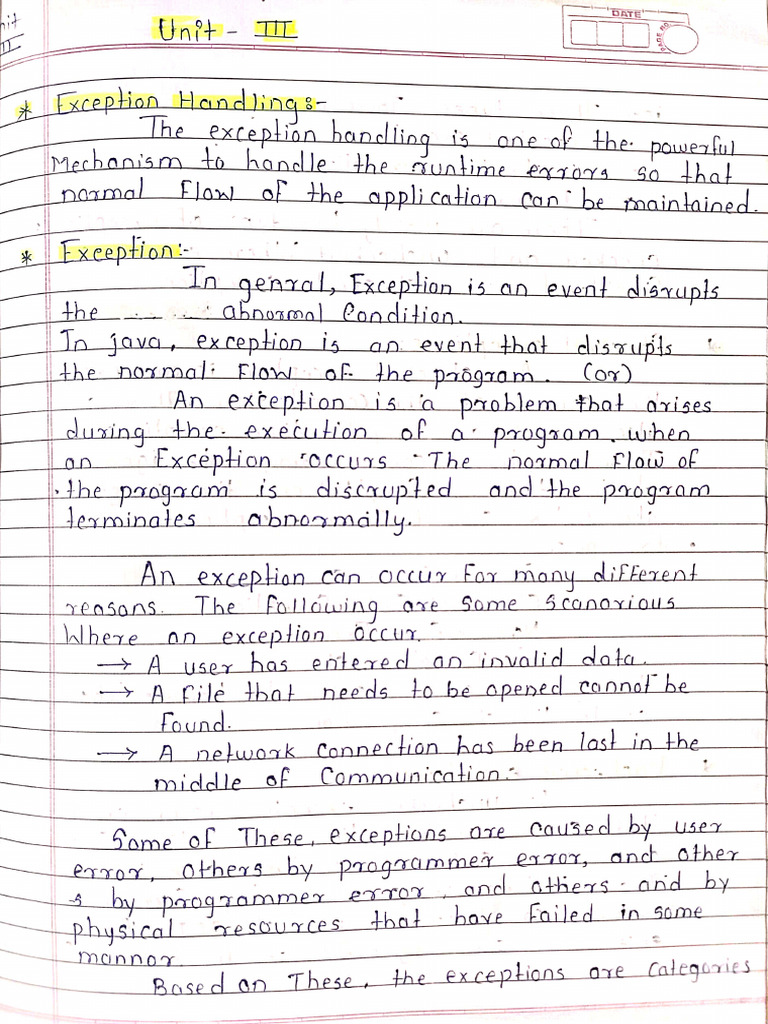 nit
II
Unit - III
DATE
PAGE NO.
* Exception Handling:-
The exception handling is one of the powerful
Mechanism to handle the runtime errors so that
normal flow of the application can be maintained.
* Exception:-
In genral, Exception is an event disrupts
the ... ... abnormal Condition.
In java, exception is an event that disrupts
the normal flow of the program. (or)
An exception is a problem that arises
during the execution of a program. when
an Exception occurs The normal flow of
the program is discrupted and the program
terminates abnormally.
An exception can occur for many different
reasons. The following are some scanarious
Where an exception occur.
→ A user has entered an invalid data.
→ A file that needs to be opened cannot be
found.
→ A network connection has been lost in the
middle of Communication.
Some of These, exceptions are caused by user
error, others by programmer error, and other
s by programmer error, and others and by
physical resources that have failed in some
mannor.
Based on These, the exceptions are categories